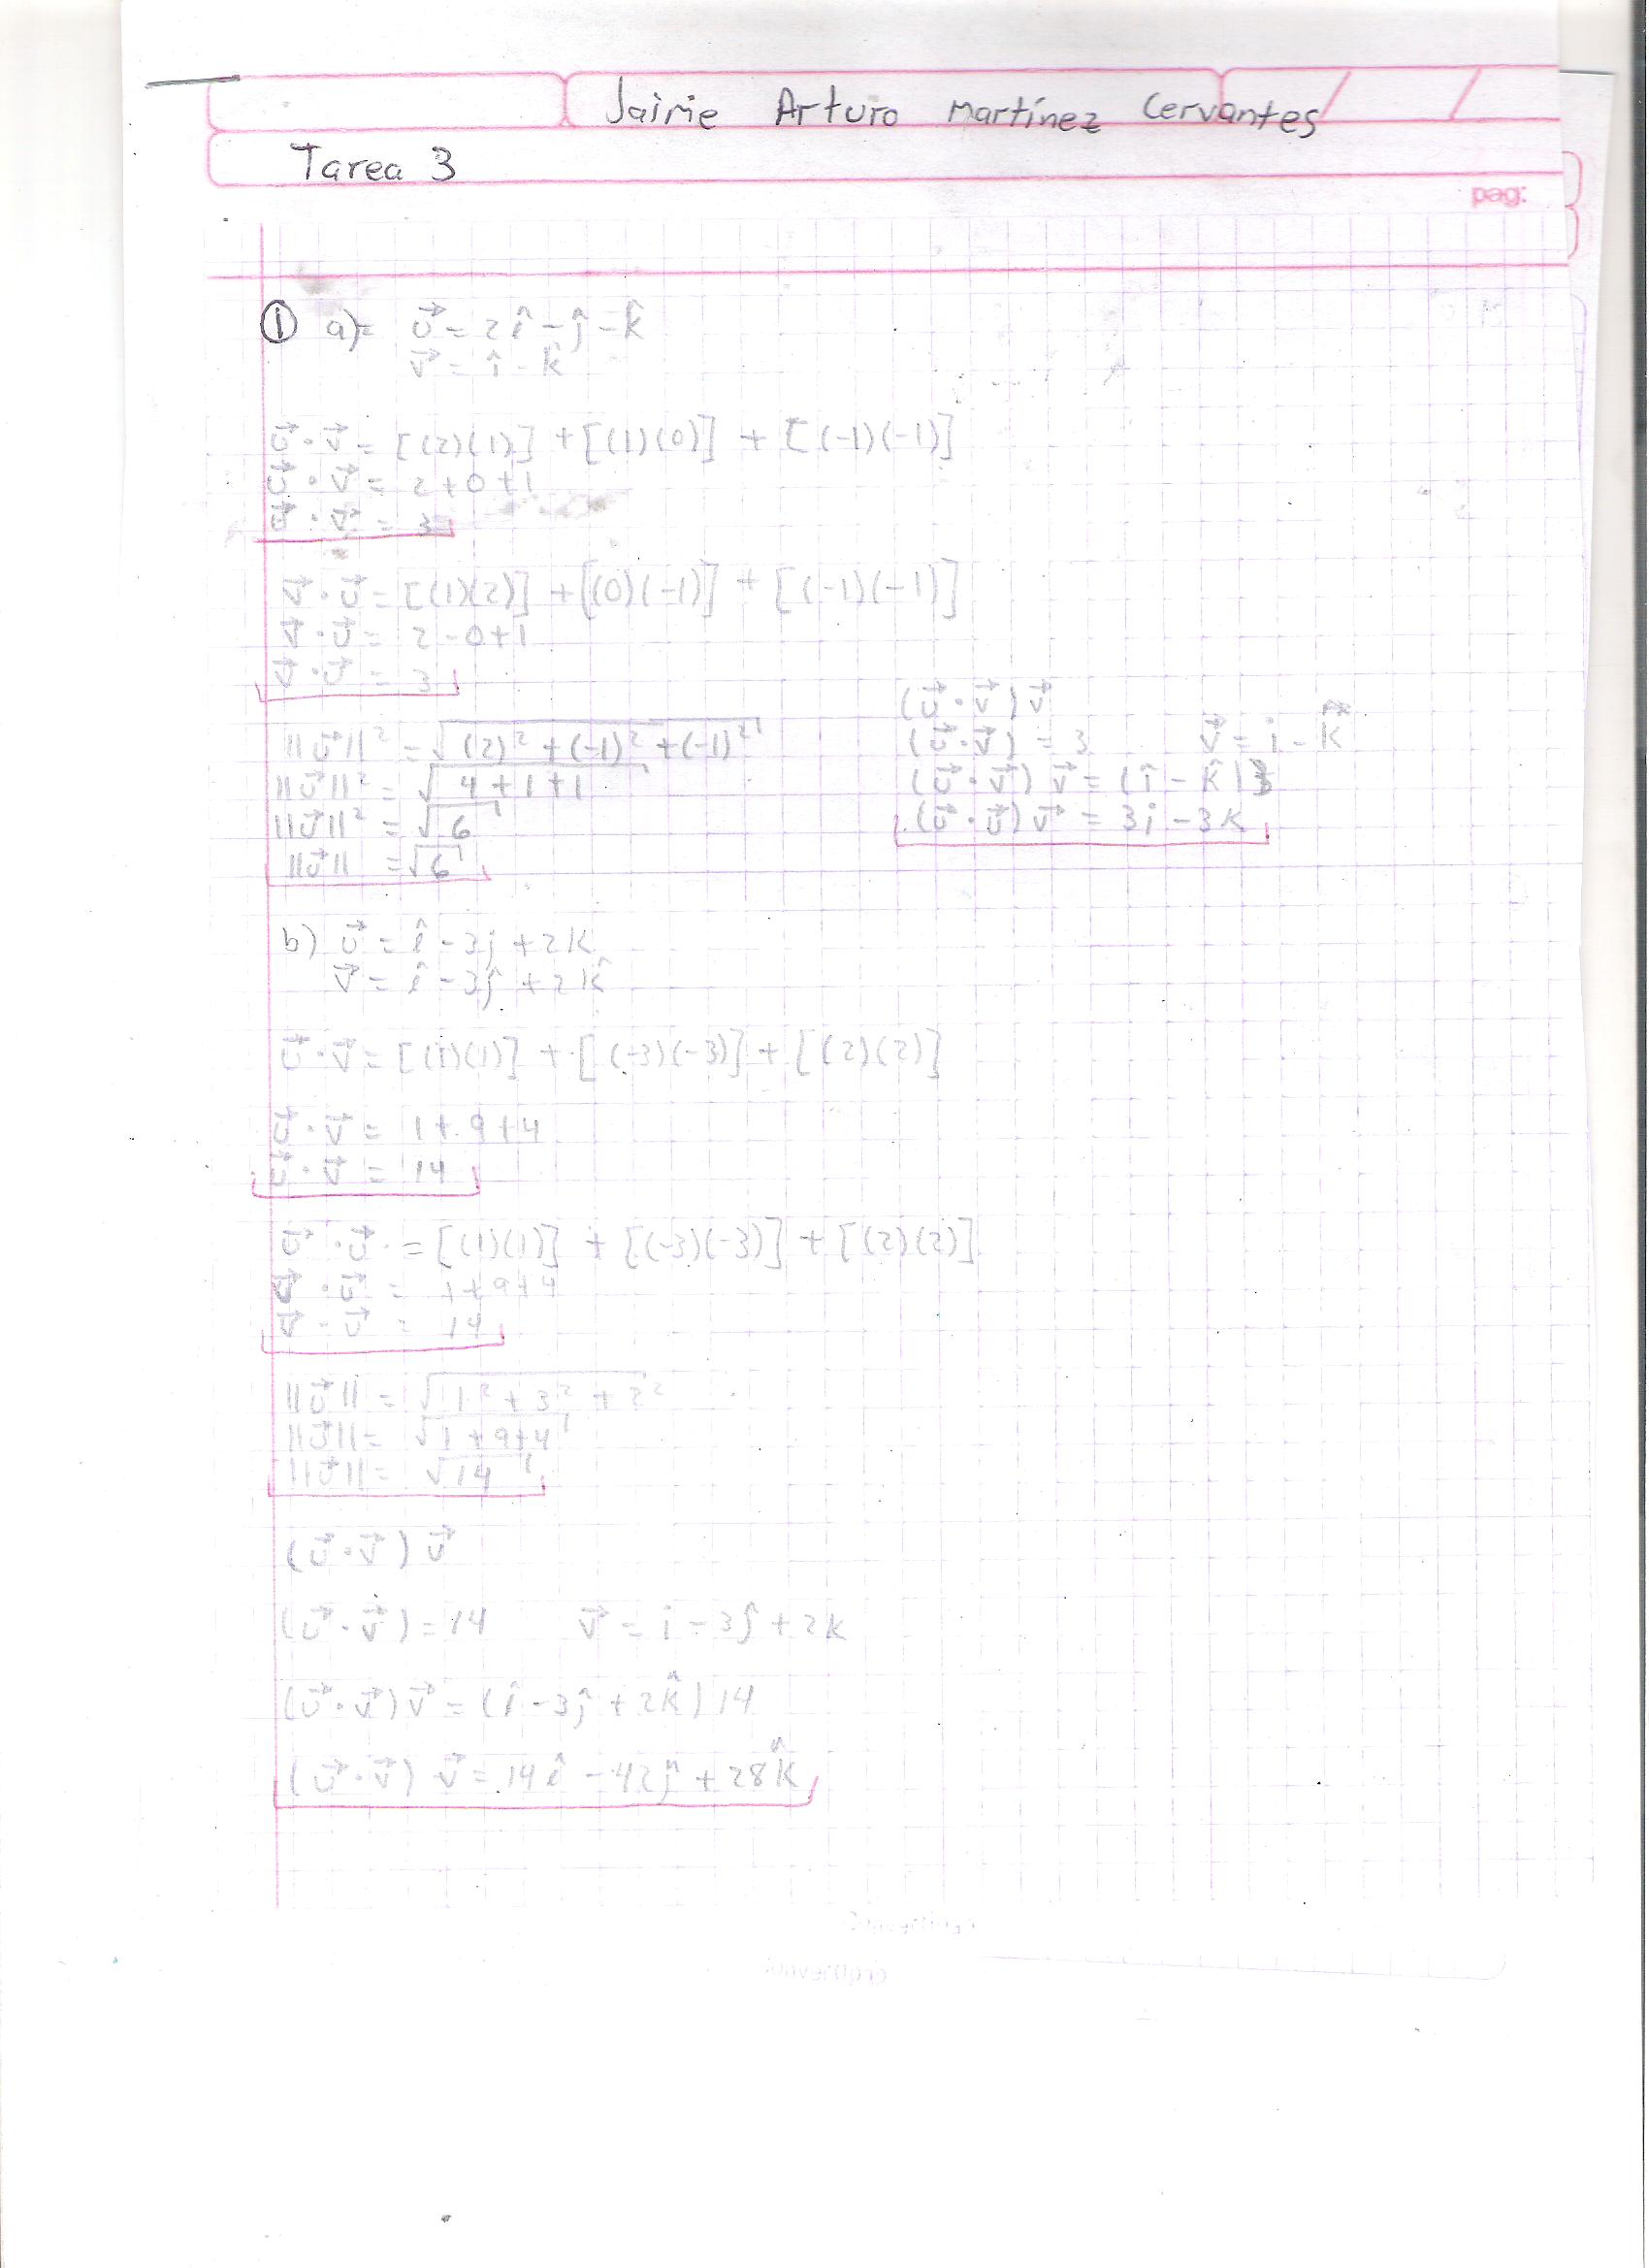 Jaime Arturo Martínez Cervantes
Tarea 3
pag:
① a)= u⃗ = 2î - ĵ - k̂
v⃗ = î - k̂
u⃗ · v⃗ = [(2)(1)] + [(1)(0)] + [(-1)(-1)]
u⃗ · v⃗ = 2+0+1
u⃗ · v⃗ = 3
v⃗ · u⃗ = [(1)(2)] + [(0)(-1)] + [(-1)(-1)]
v⃗ · u⃗ = 2-0+1
v⃗ · u⃗ = 3
||u⃗||² = √(2)² + (-1)² + (-1)²
||u⃗||² = √4+1+1
||u⃗||² = √6
||u⃗|| = √6
(u⃗ · v⃗) v⃗
(u⃗ · v⃗) = 3 v⃗ = i - k⃗
(u⃗ · v⃗) v⃗ = (î - k̂) 3
(u⃗ · u⃗) v⃗ = 3i - 3k
b) u⃗ = î - 3j + 2k
v⃗ = î - 3ĵ + 2k̂
u⃗ · v⃗ = [(1)(1)] + [(-3)(-3)] + [(2)(2)]
u⃗ · v⃗ = 1+9+4
u⃗ · v⃗ = 14
v⃗ · u⃗ = [(1)(1)] + [(-3)(-3)] + [(2)(2)]
v⃗ · u⃗ = 1+9+4
v⃗ · u⃗ = 14
||u⃗|| = √1² + 3² + 2²
||u⃗|| = √1+9+4
||u⃗|| = √14
(u⃗ · v⃗) v⃗
(u⃗ · v⃗) = 14 v⃗ = i - 3ĵ + 2k
(u⃗ · v⃗) v⃗ = (î - 3ĵ + 2k̂) 14
(u⃗ · v⃗) v⃗ = 14î - 42ĵ + 28k̂